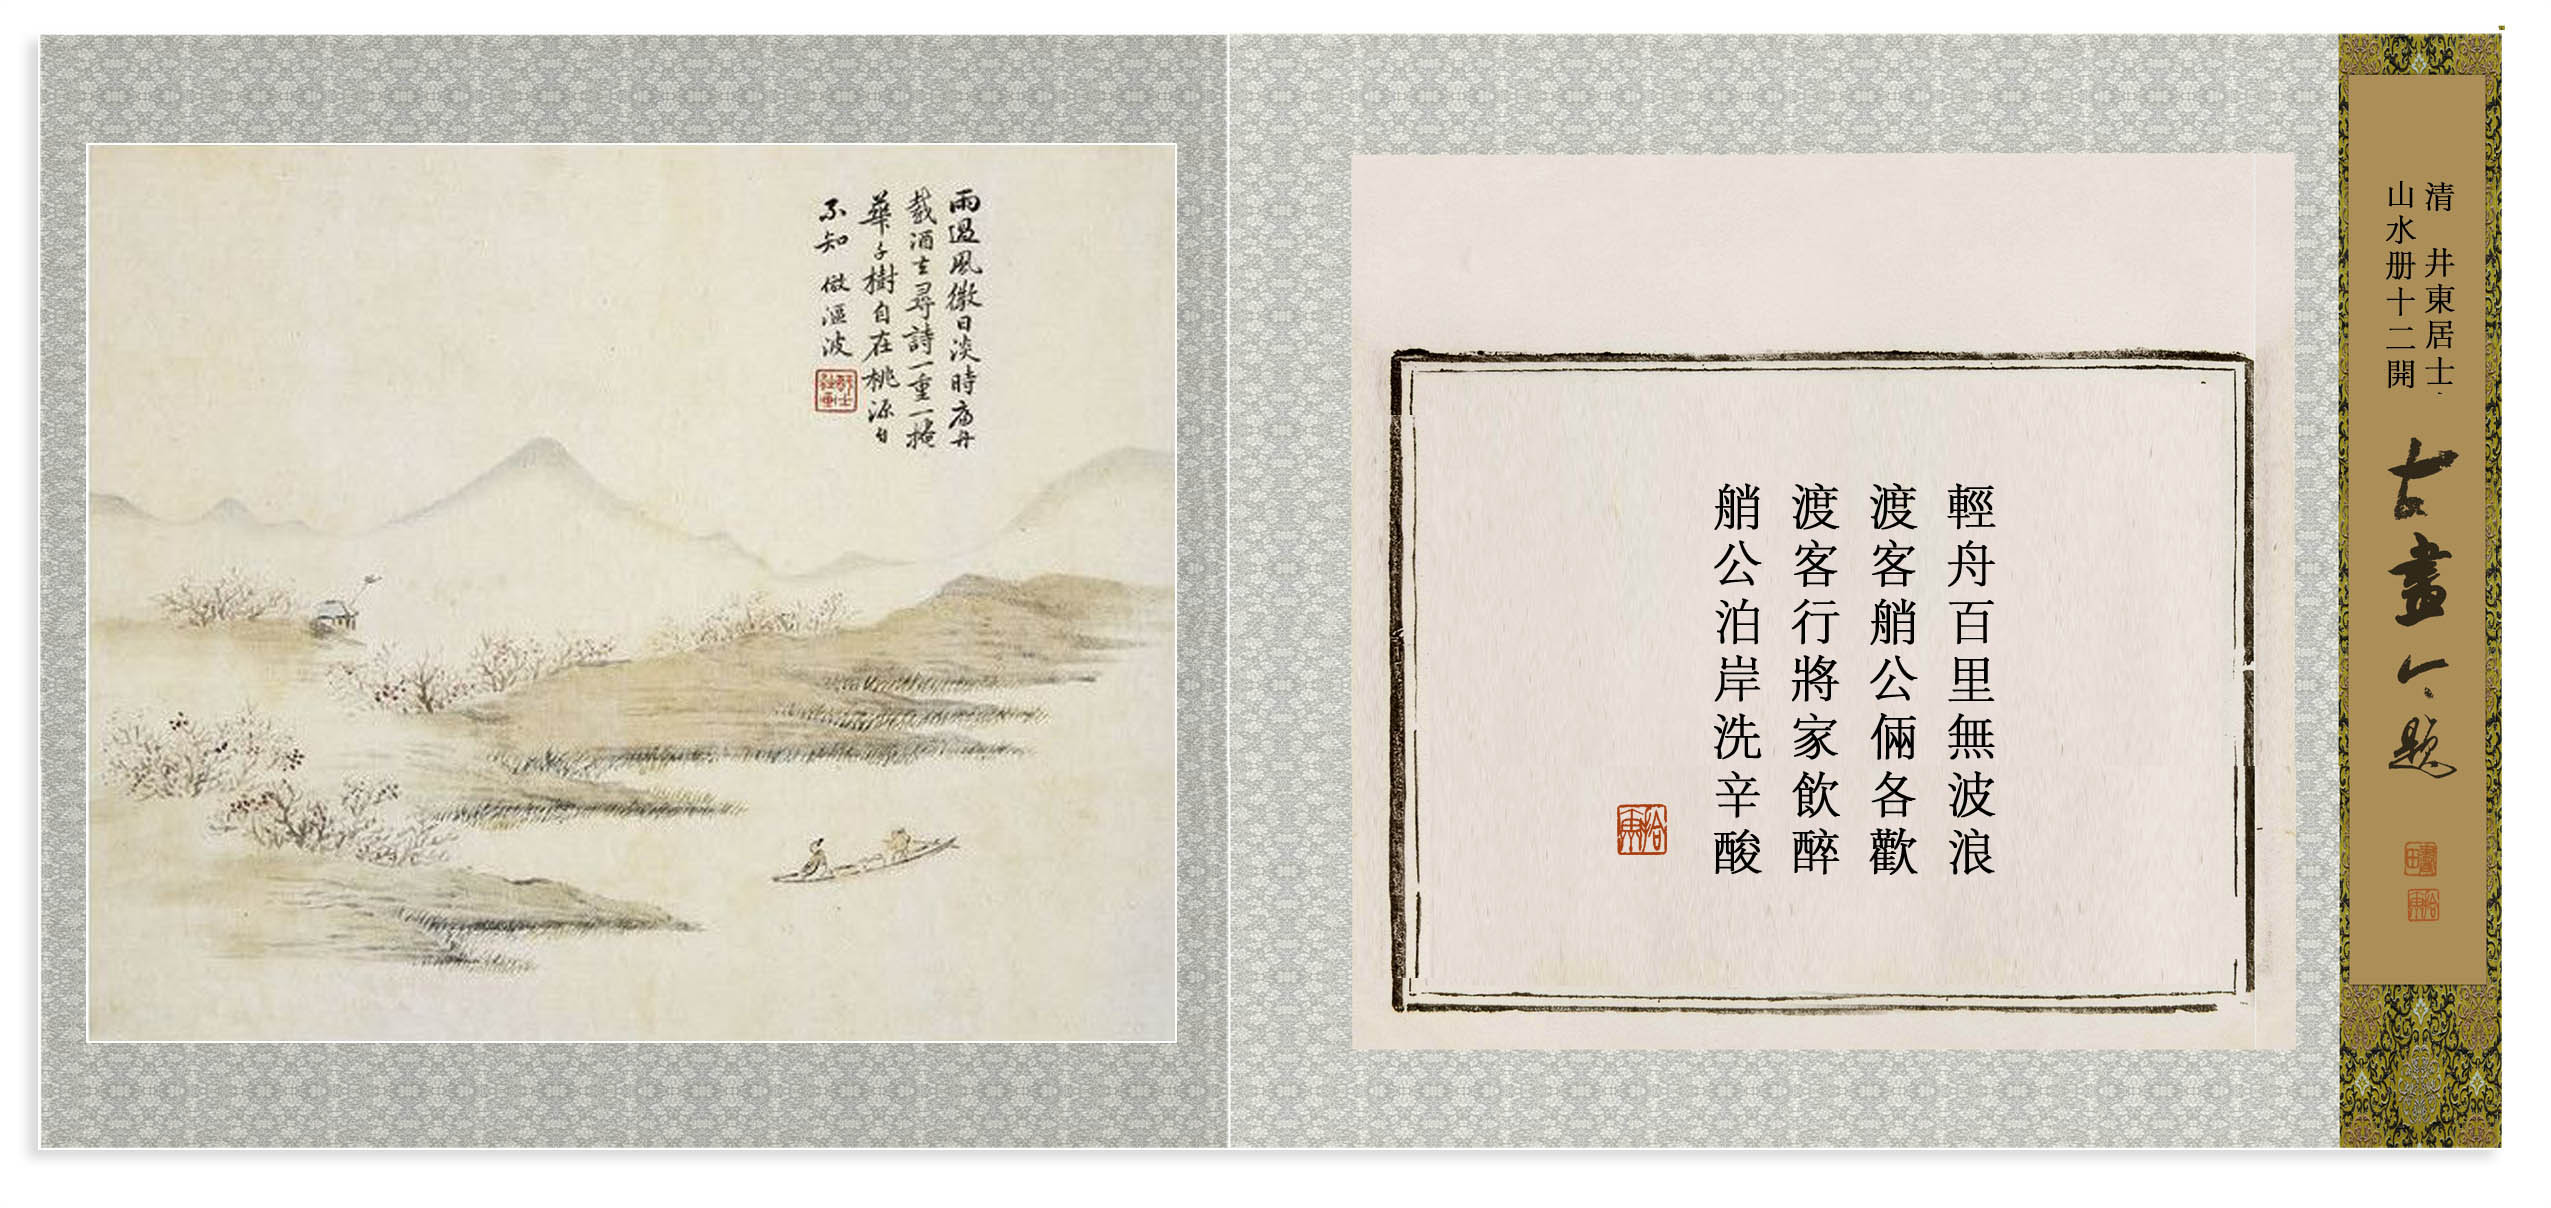 清 井東居士
山水册十二開
古畫今題
輕舟百里無波浪
渡客艄公倆各歡
渡客行將家飲醉
艄公泊岸洗辛酸
雨過風微日淡時扁舟
載酒去尋詩一重一掩
華子樹自在桃源自
不知 倣漚波